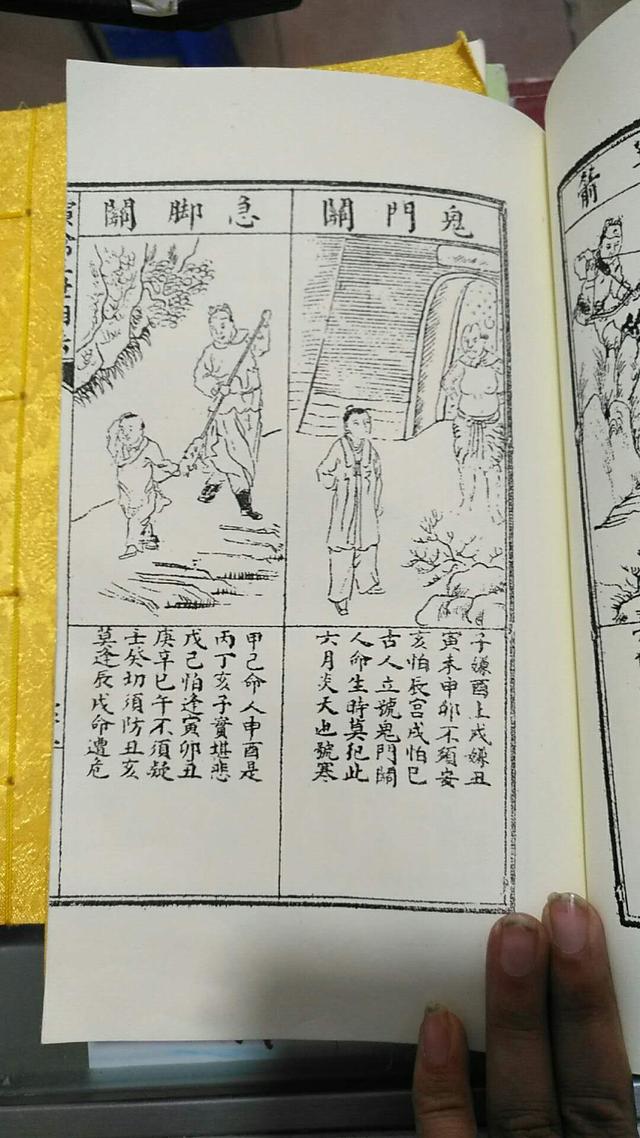 箭
鬼門關
子嫌酉上戌嫌丑
寅未申卯不須安
亥怕辰宫戌怕巳
古人立號鬼門關
人命生時莫犯此
六月炎天也號寒
急脚關
甲己命人申酉是
丙丁亥子實堪悲
戊己怕逢寅卯丑
庚辛巳午不須疑
壬癸切須防丑亥
莫逢辰戌命遭危